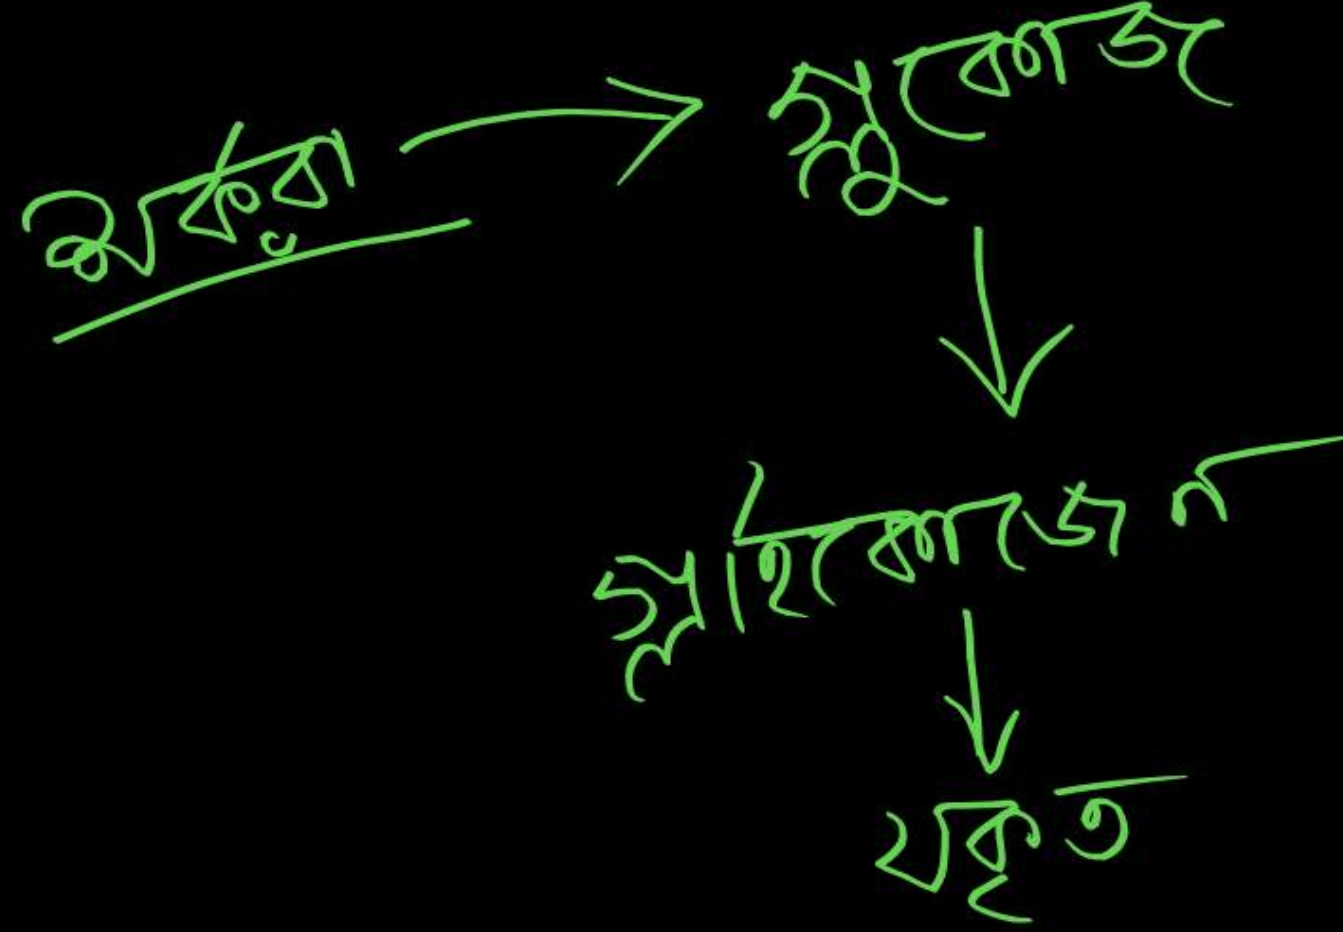 শর্করা
গ্লুকোজ
গ্লাইকোজেন
যকৃত